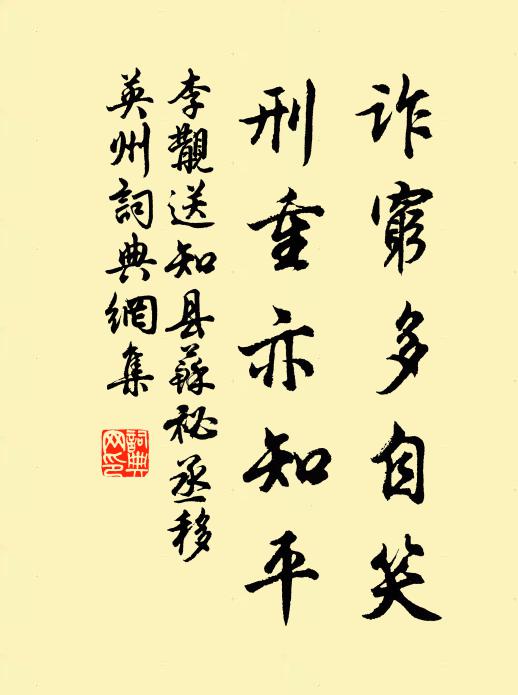 詐窮多自笑
刑重亦知平
李覯送知县蘇祕丞移
英州詞典網集
詞典
网印